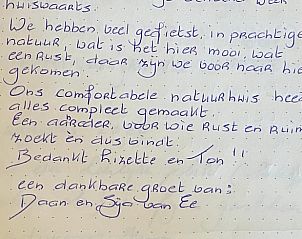 huiswaarts.
We hebben veel gefietst, in prachtige
natuur, wat is het hier mooi, wat
een Rust, daar zijn we voor naar hie
gekomen.
Ons comfortabele natuurhuis hee
alles compleet gemaakt.
Een aarader, voor wie Rust en Ruim
zoekt en dus vindt.
Bedankt Rizette en Ton!!
een dankbare groet van:
Daan en Sja van Ee